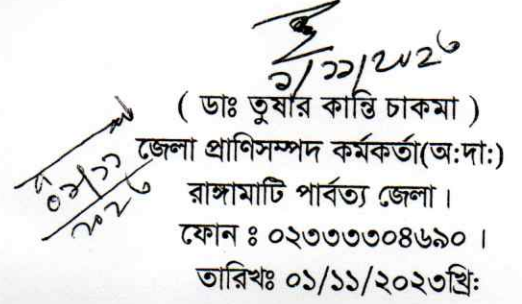 ১/১১/২০২৩
( ডাঃ তুষার কান্তি চাকমা )
জেলা প্রাণিসম্পদ কর্মকর্তা(অ:দা:)
রাঙ্গামাটি পার্বত্য জেলা।
ফোন ঃ ০২৩৩৩৩০৪৬৯০ ।
তারিখঃ ০১/১১/২০২৩খ্রিঃ
০১/১১
২০২৩